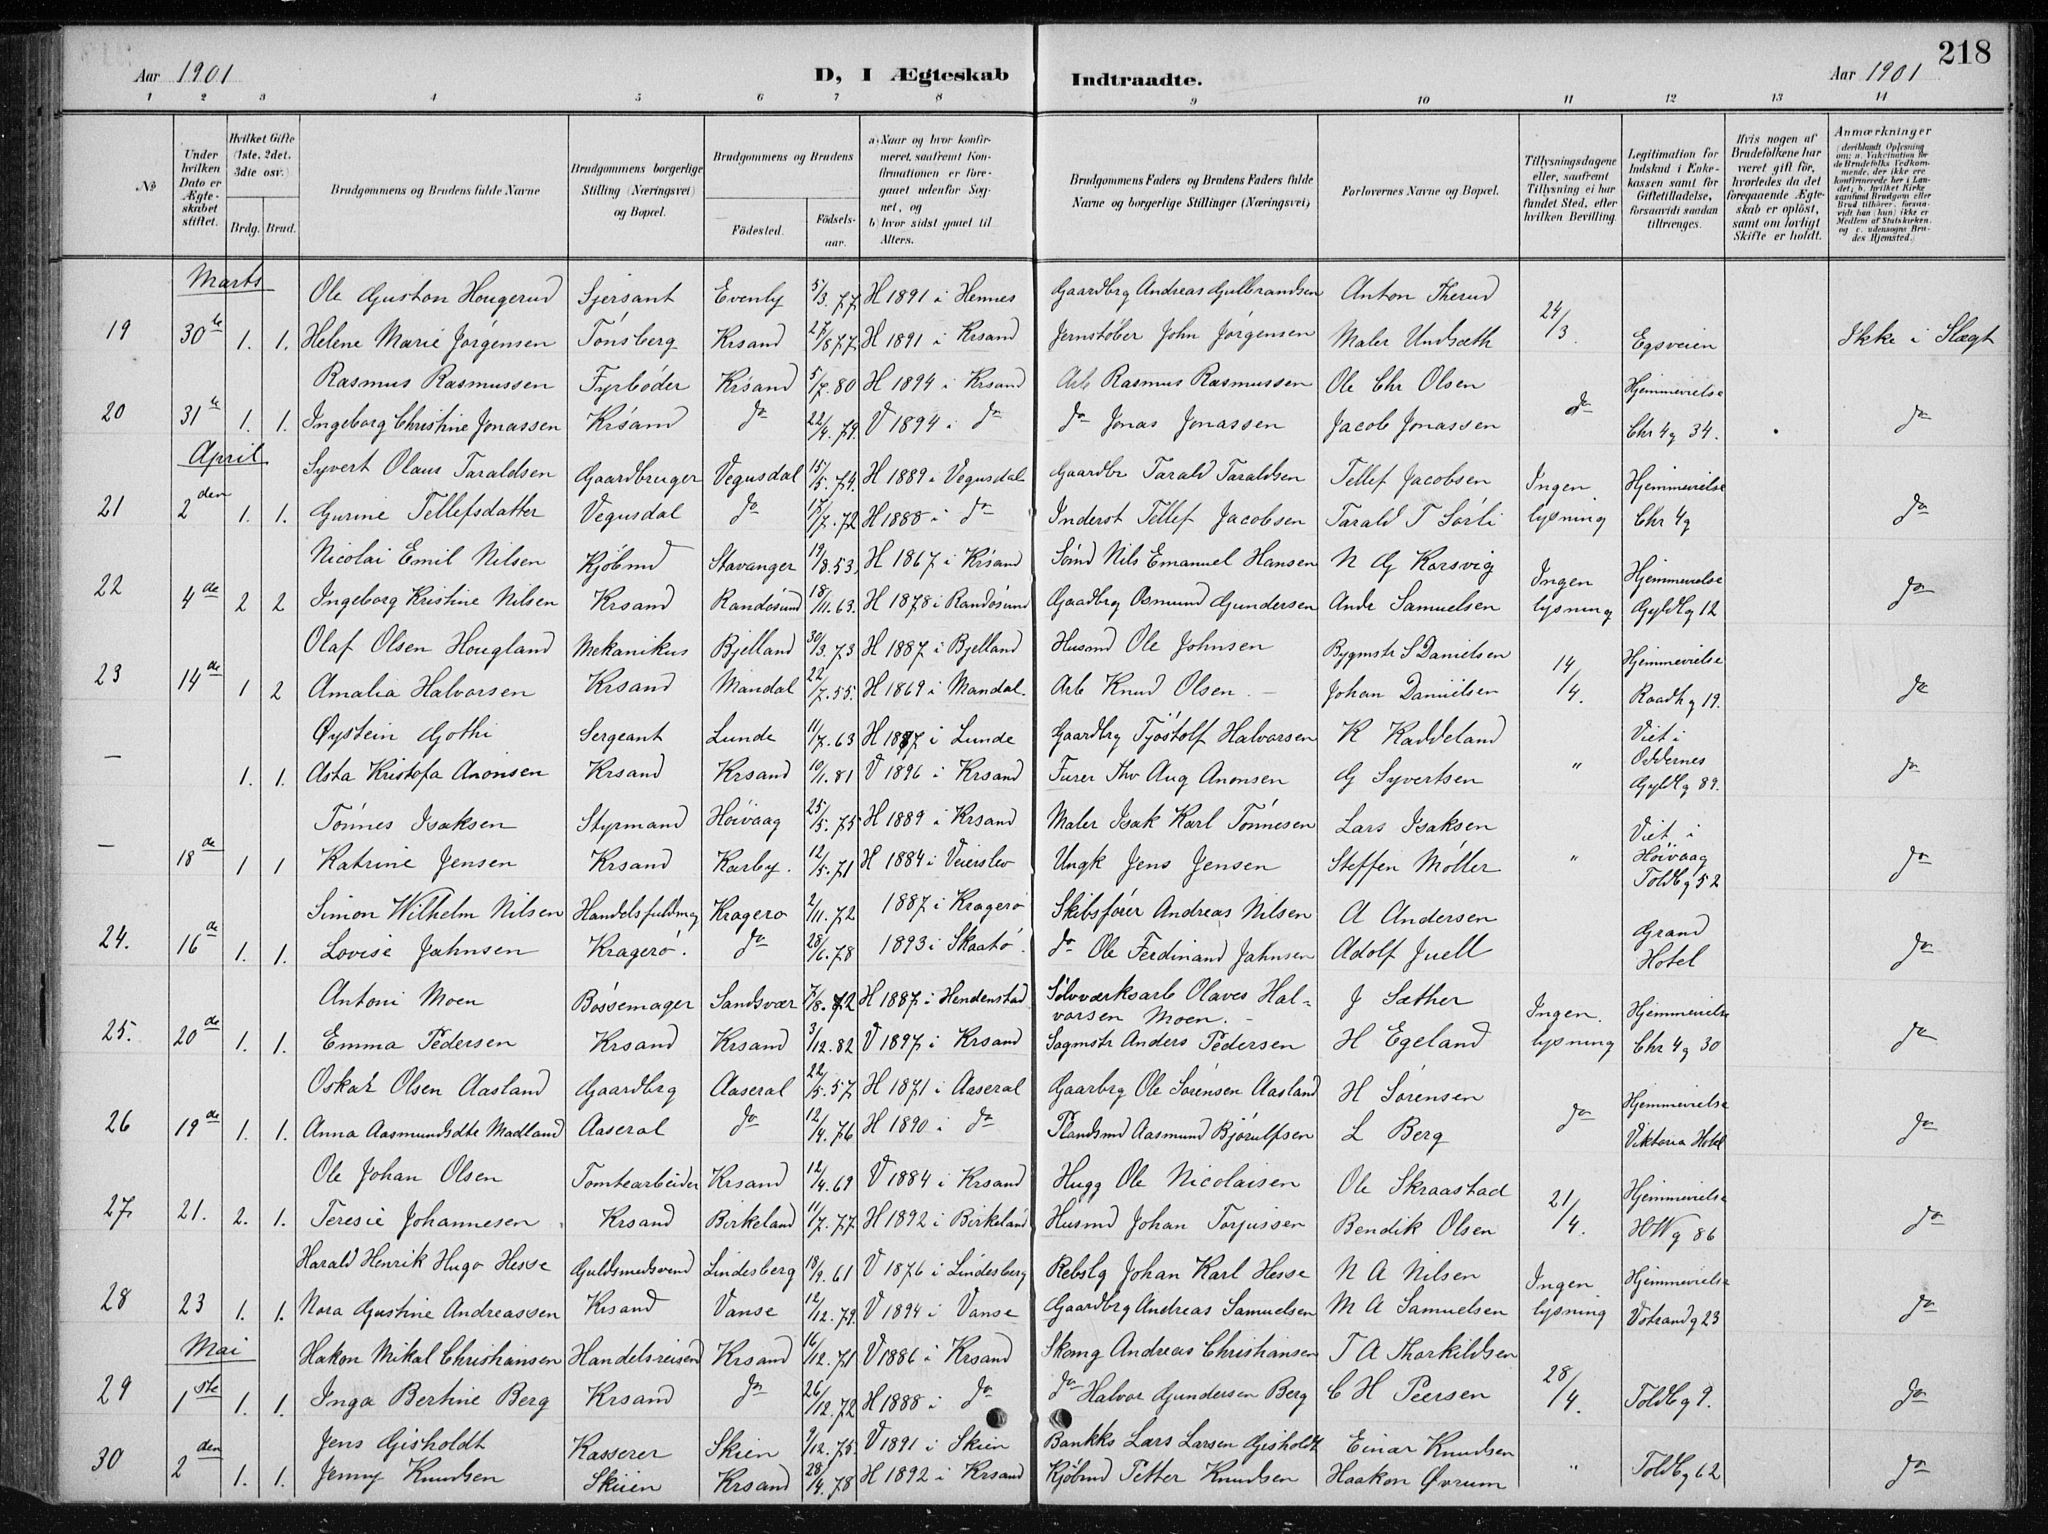 218
Aar 1901 D, I Ægteskab Indtraadte. Aar 1901
1 2 3 4 5 6 7 8 9 10 11 12 13 14
No
Under hvilken Dato er Ægteskabet stiftet.
Hvilket Gifte (1ste, 2det, 3die osv.)
Brdg. Brud.
Brudgommens og Brudens fulde Navne
Brudgommens borgerlige Stilling (Næringsvei) og Bopæl.
Brudgommens og Brudens
Födested. Födsels-aar.
a) Naar og hvor konfirmeret, saafremt Konfirmationen er foregaaet udenfor Sognet, og
b) hvor sidst gaaet til Alters.
Brudgommens Faders og Brudens Faders fulde Navne og borgerlige Stillinger (Næringsvei)
Forlovernes Navne og Bopæl.
Tillysningsdagene eller, saafremt Tillysning ei har fundet Sted, efter hvilken Bevilling.
Legitimation for Indskud i Enkekassen samt for Giftetilladelse, forsaavidt saadan tiltrænges.
Hvis nogen af Brudefolkene har været gift för, hvorledes da det foregaaende Ægteskab er oplöst, samt om lovligt Skifte er holdt.
Anmærkninger (deriblandt Oplysning om; a. Vakcination for de Brudefolks Vedkommende, der ikke ere konfirmerede her i Landet; b. hvilket Kirkesamfund Brudgom eller Brud tilhörer, forsaavidt han (hun) ikke er Medlem af Statskirken, og c. udensogns Brudes Hjemsted.)
Marts
Ole Guston Hougerud Sjersant Evenby 5/3.77 H 1891 i Hennes Gaardbrg Andreas Gulbrandsen Anton Therud 24/3
19 30te 1. 1. Helene Marie Jørgensen Tönsberg Krsand 27/8.77. H 1891 i Krsand Jernstøber John Jørgensen Maler Undsæth Egsveien Ikke i Slægt
Rasmus Rasmussen Fyrbøder Krsand 5/7.80 H 1894 i Krsand Arb Rasmus Rasmussen Ole Chr Olsen Hjemmevielse
20 31te 1. 1. Ingeborg Christine Jonassen Krsand do 22/4.79. V 1894 i do do Jonas Jonassen Jacob Jonassen do Chr 4g 34. do
April
Syvert Olaus Taraldsen Gaardbruger Vegusdal 15/5.74. H 1889 i Vegusdal Gaardbr Tarald Taraldsen Tellef Jacobsen Ingen Hjemmevielse
21 2den 1. 1. Gurine Tellefsdatter Vegusdal do 17/7.72 H 1888 i do Inderst Tellef Jacobsen Tarald T Sørli lysning Chr 4g do
Nicolai Emil Nilsen Kjöbmd Stavanger 19/8.53, H 1867 i Krsand Sömd Nils Emanuel Hansen N G Korsvig Ingen Hjemmevielse
22 4de 2 2 Ingeborg Kristine Nilsen Krsand Randøsund 18/11.63. H 1878 i Randøsund Gaadbrg Osmund Gundersen Andr Samuelsen lysning Gyldlg 12 do
Olaf Olsen Hougland Mekanikus Bjelland 30/3.73 H 1887 i Bjelland Husmd Ole Johnsen Bygmstr S Danielsen 14/4. Hjemmevielse
23 14de 1 2 Amalia Halvorsen Krsand Mandal 22/7.55. H 1869 i Mandal. Arb Knud Olsen. – Johan Danielsen Raadhg 19. do
Øystein Gothi Sergeant Lunde 11/7.63 H 1877 i Lunde Gaardbrg Tjöstolf Halvorsen K Kaddeland Viet i
— 1. 1. Asta Kristofa Aronsen Krsand Krsand 10/1.81 V 1896 i Krsand Furer Thv Aug Aronsen G Syvertsen " Oddernes Gyldlg 89. do
Tönnes Isaksen Styrmand Höivaag 25/5.75 H 1889 i Krsand Maler Isak Karl Tönnesen Lars Isaksen Viet i
— 18de 1 1 Katrine Jensen Krsand Karby. 12/5.71 H 1884 i Veierslev Ungk Jens Jensen Steffen Møller " Höivaag Toldbg 52 do
Simon Wilhelm Nilsen Handelsfuldmg Kragerø 2/11.72 1887 i Kragerø Skibsfører Andreas Nilsen A Andersen Grand
24. 16de 1. 1. Lovise Jahnsen Kragerø. do 28/6.78 1893 i Skaatø. do Ole Ferdinand Jahnsen Adolf Juell Hotel do
Antoni Moen Bøssemager Sandsvær 7/8.72 H 1887 i Hendenstad Sølvværksarb Olaves Halvorsen Moen. – J Sæther Ingen Hjemmevielse
25. 20de 1. 1. Emma Pedersen Krsand Krsand 3/12.82 V 1897 i Krsand Sagmstr Anders Pedersen H Egeland lysning Chr 4g 30 do
Oskar Olsen Aasland Gaardbrg Aaseral 22/5.57 H 1871 i Aaseral Gaarbrg Ole Sørensen Aasland H Sørensen Hjemmevielse
26 19de 1. 1. Anna Aasmundsdte Madland Aaseral do 12/4.76 H 1890 i do Plandsmd Aasmund Bjørulfsen L Berg do Viktoria Hotel do
Ole Johan Olsen Tomtearbeider Krsand 12/4.69 V 1884 i Krsand Hugg Ole Nicolaisen Ole Skraastad 21/4. Hjemmevielse
27. 21. 2. 1. Teresie Johannesen Krsand Birkeland 11/7.77 H 1892 i Birkeland Husmd Johan Torjussen Bendik Olsen HWg 86 do
Harald Henrik Hugo Hesse Guldsmedsvend Lindesberg 19/9.61 V 1876 i Lindesberg Rebslg Johan Karl Hesse N A Nilsen Ingen Hjemmevielse
28 23 1. 1. Nora Gustine Andreassen Krsand Vanse 12/12.79. V 1894 i Vanse Gaardbrg Andreas Samuelsen M A Samuelsen lysning Vstrandg 23 do
Mai
Hakon Mikal Christiansen Handelsreisend Krsand 16/12.71 V 1886 i Krsand Skomg Andreas Christiansen T A Thorkildsen 28/4.
29 1ste 1. 1. Inga Bertine Berg Krsand do 26/12.72 H 1888 i do do Halvor Gundersen Berg C H Peersen Toldbg 9. do
Jens Gisholdt Kasserer Skien 9/12.75. V 1891 i Skien Bankks Lars Larsen Gisholdt Einar Knudsen
30 2den 1. 1. Jenny Knudsen Skien Krsand 28/4.78 H 1892 i Krsand Kjøbmd Petter Knudsen Haakon Øvrum " Toldbg 62 do